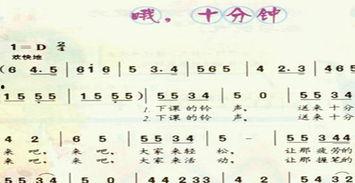 哦，十分钟
1=D 2/4
欢快地
(6 4.5 | 6 1 6 | 5 3.4 | 5 6 5 | 4 2.3 | 4 6 5
1 5 5 5 | 1 5 5 5) | 5 5 3 4 | 5 0 | 5 5 3 4
1.下课的铃 声, 送来十分
2.下课的铃 声, 送来十分
4 2 | 6 5 | 5 5 3 4 | 5 - | 5 5 3 4
来 吧, 来 吧, 大家来轻 松, 让那疲劳的
来 吧, 来 吧, 大家来活 动, 让那握笔的
5 5 3 4 | 5 0 | 4 4 2 3 3 | 4 0 | 5 4 3 2